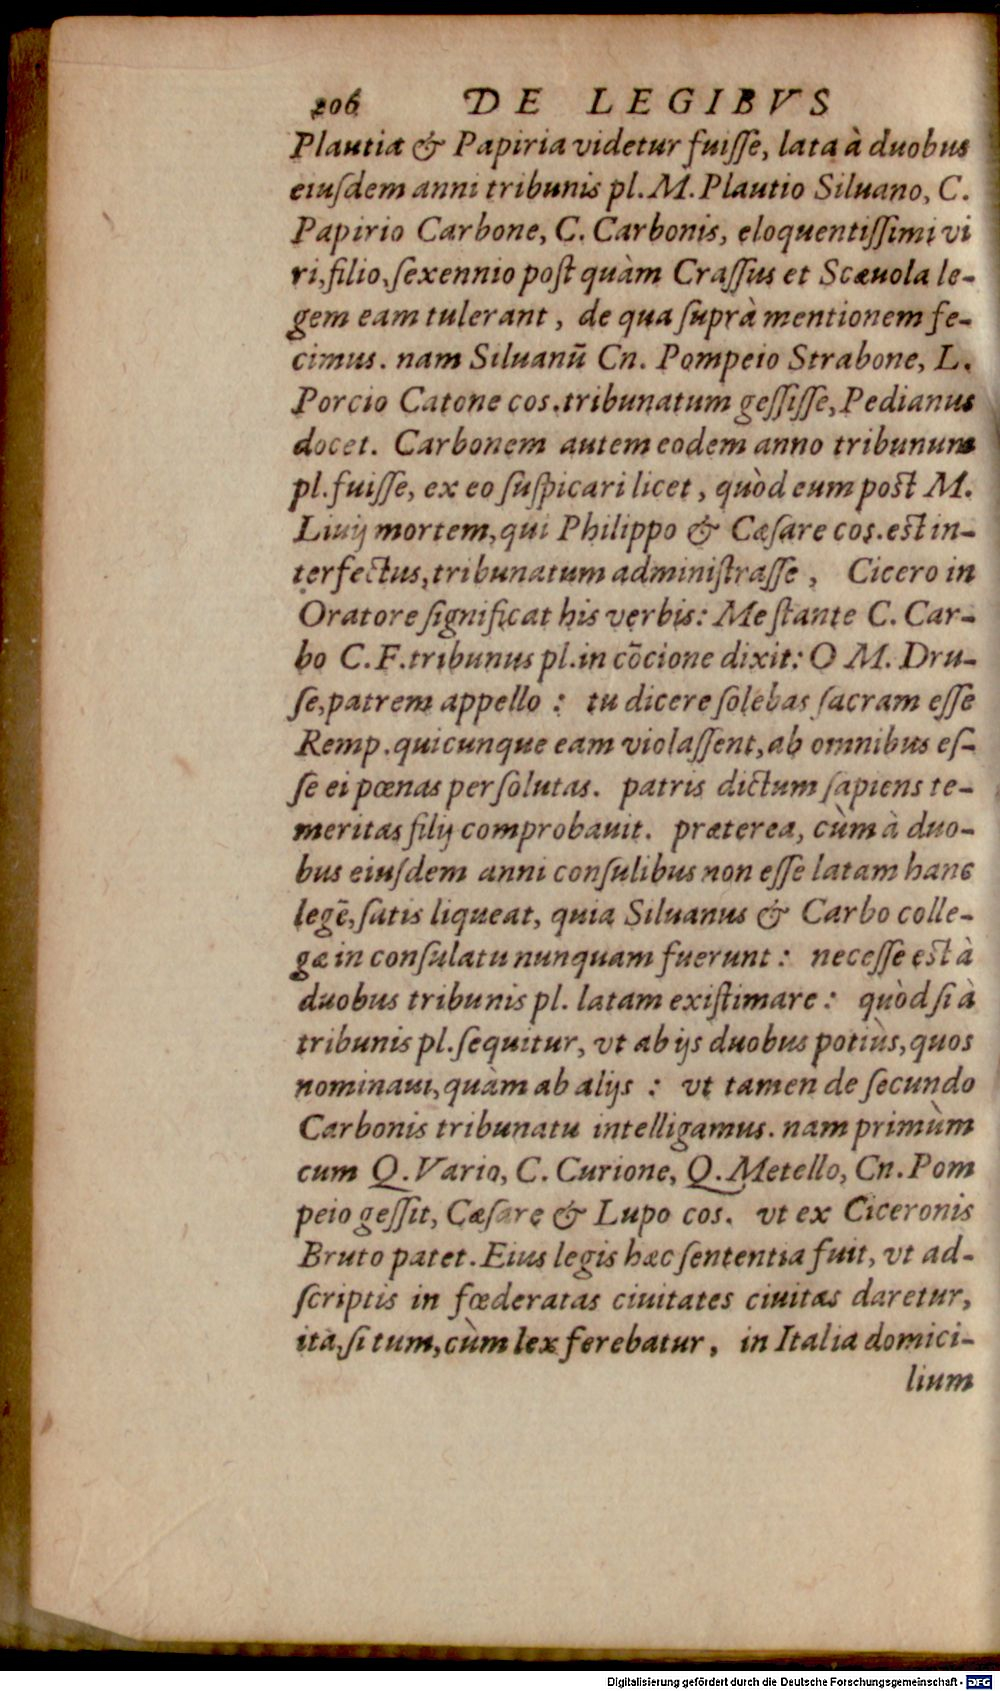 206 DE LEGIBVS
Plautia & Papiria videtur fuisse, lata à duobus
eiusdem anni tribunis pl. M. Plautio Siluano, C.
Papirio Carbone, C. Carbonis, eloquentissimi vi
ri, filio, sexennio post quàm Crassus et Scæuola le-
gem eam tulerant, de qua suprà mentionem fe-
cimus. nam Siluanũ Cn. Pompeio Strabone, L.
Porcio Catone cos. tribunatum gessisse, Pedianus
docet. Carbonem autem eodem anno tribunum
pl. fuisse, ex eo suspicari licet, quòd eum post M.
Liuij mortem, qui Philippo & Cæsare cos. est in-
terfectus, tribunatum administrasse, Cicero in
Oratore significat his verbis: Me stante C. Car-
bo C. F. tribunus pl. in cõcione dixit: O M. Dru-
se, patrem appello: tu dicere solebas sacram esse
Remp. quicunque eam violassent, ab omnibus es-
se ei pœnas persolutas. patris dictum sapiens te-
meritas filij comprobauit. præterea, cùm à duo-
bus eiusdem anni consulibus non esse latam hanc
legẽ, satis liqueat, quia Siluanus & Carbo colle-
gæ in consulatu nunquam fuerunt: necesse est à
duobus tribunis pl. latam existimare: quòd si à
tribunis pl. sequitur, vt ab ijs duobus potiùs, quos
nominaui, quàm ab alijs: vt tamen de secundo
Carbonis tribunatu intelligamus. nam primùm
cum Q. Vario, C. Curione, Q. Metello, Cn. Pom
peio gessit, Cæsare & Lupo cos. vt ex Ciceronis
Bruto patet. Eius legis hæc sententia fuit, vt ad-
scriptis in fœderatas ciuitates ciuitas daretur,
ita, si tum, cùm lex ferebatur, in Italia domici-
lium
Digitalisierung gefördert durch die Deutsche Forschungsgemeinschaft - DFG